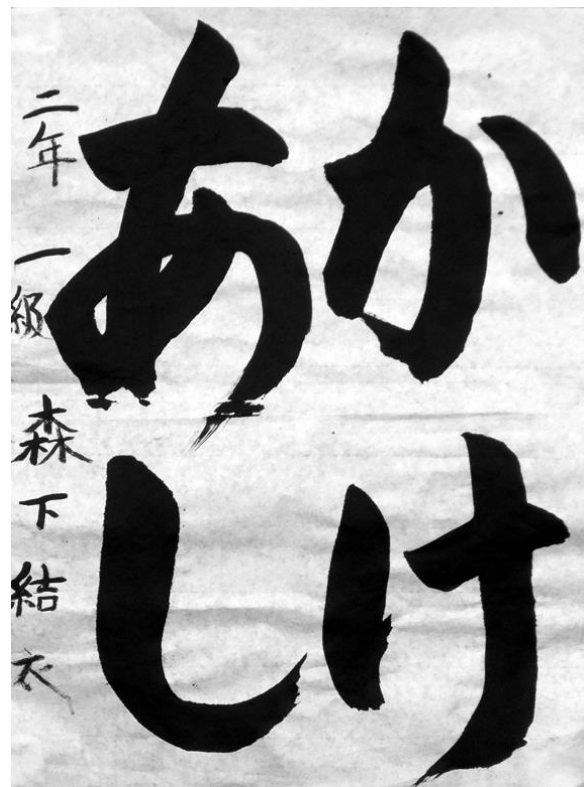 かけ
あし
二年 一級 森下結衣